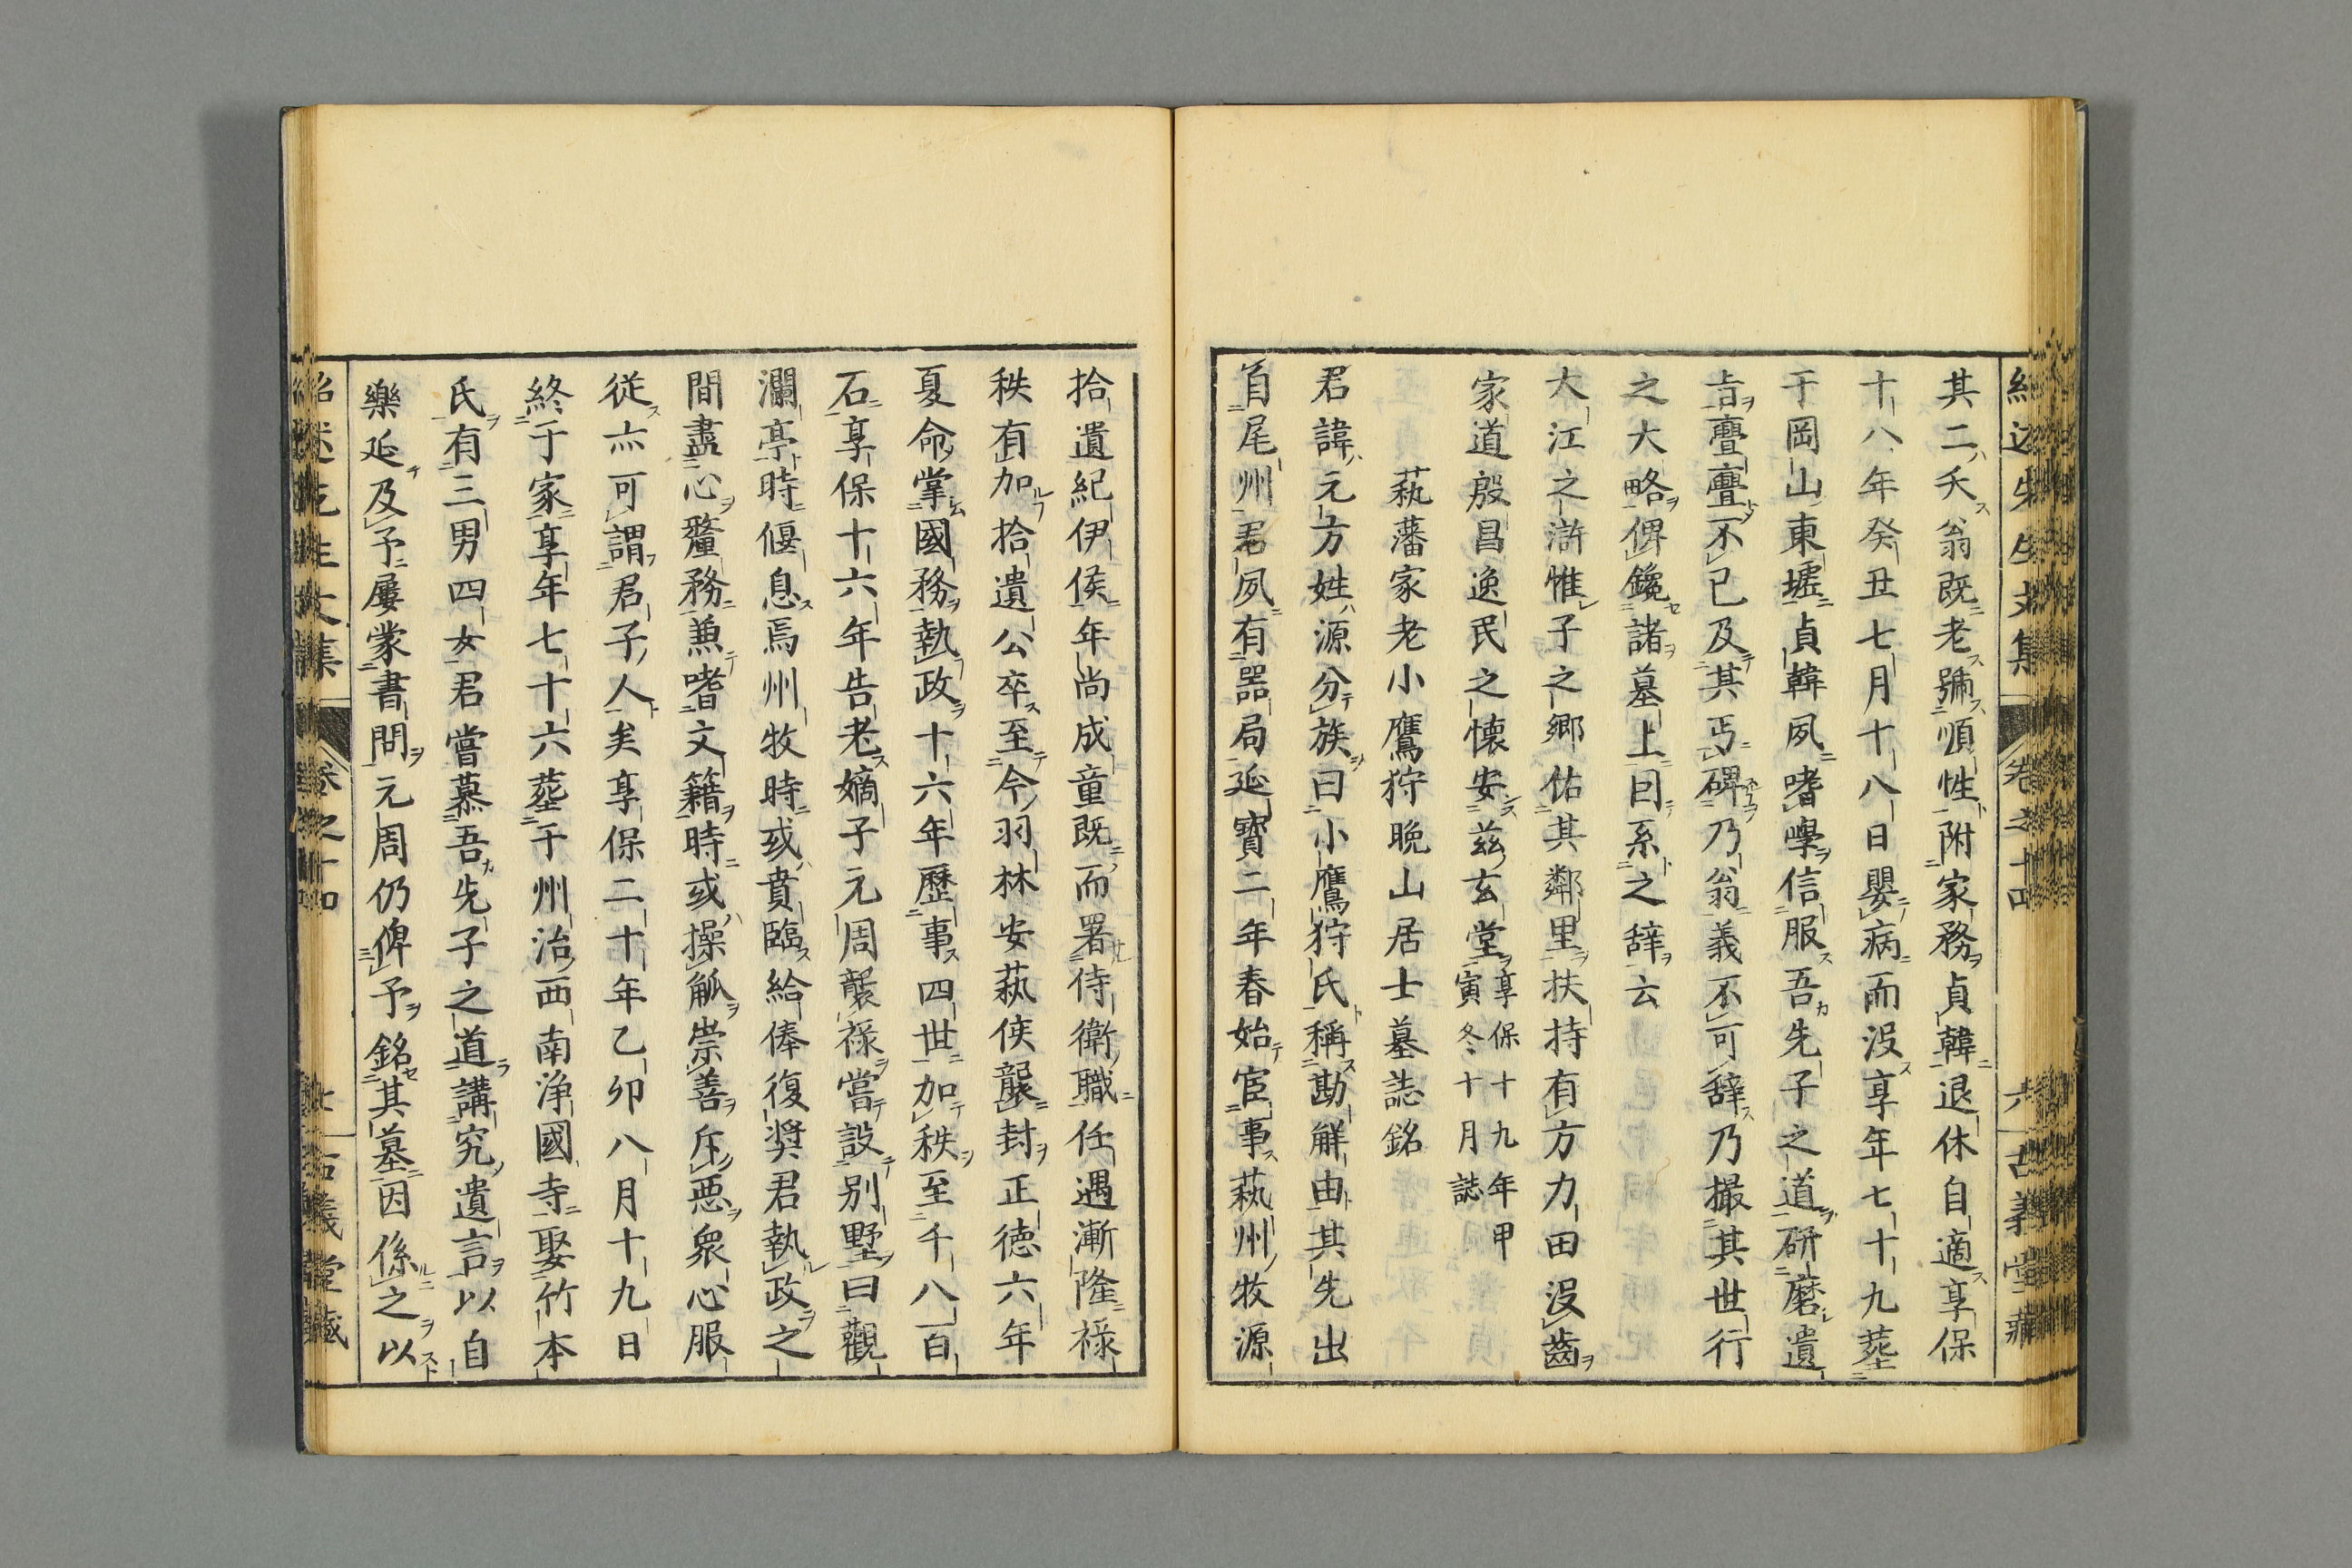 其二夭翁既老號順性附家務貞韓退休自適享保
十八年癸丑七月十八日嬰病而沒享年七十九葬
于岡山東墟貞韓夙嗜學信服吾先子之道研磨遺
㫖亹亹不已及其丐碑乃翁義不可辞乃撮其世行
之大略俾鑱諸墓上囙系之辞云
大江之滸惟子之郷佑其鄰里扶持有方力田沒齒
家道殷昌逸民之懐安玆玄堂享保十九年甲
寅冬十月誌
萩藩家老小鷹狩晩山居士墓誌銘
君諱元方姓源分族曰小鷹狩氏稱勘解由其先出
自尾州君夙有器局延寶二年春始宦事萩州牧源
拾遺紀伊侯年尚成童既而署侍衛職任遇漸隆禄
秩有加拾遺公卒至今羽林安萩侠襲封正徳六年
夏命掌國務執政十六年歷事四世加秩至千八百
石享保十六年告老嫡子元周襲禄嘗設別墅曰觀
瀾亭時偃息焉州牧時或賁臨給俸復奨君執政之
間盡心釐務兼嗜文籍時或操觚崇善斥惡衆心服
従亦可謂君子人矣享保二十年乙卯八月十九日
終于家享年七十六葬于州治西南浄國寺娶竹本
氏有三男四女君嘗慕吾先子之道講究遺言以自
樂延及予屢蒙書問元周仍俾予銘其墓因係之以
卷之十四
古義堂藏